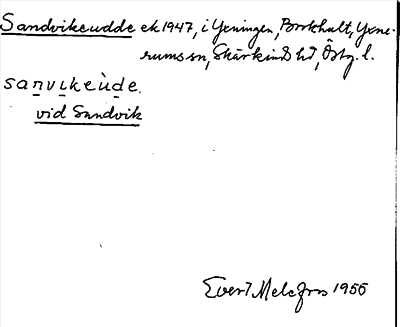 Sandvikeudde ek 1947, i Yxningen, Borkhult, Yxne-
rums sn, Skärkinds hd, Östg. l.
sanvikeùde.
vid Sandvik
Evert Melefors 1955